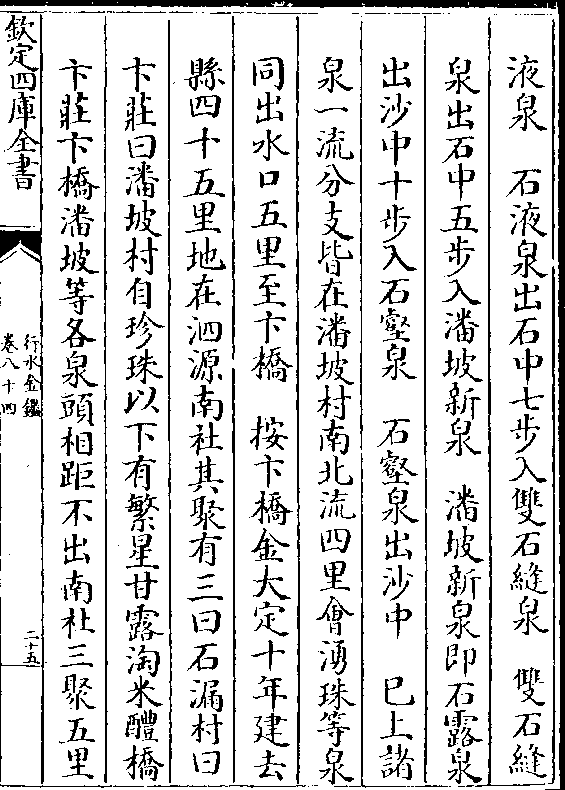 液泉　石液泉出石中七步入雙石縫泉　雙石縫
泉出石中五步入潘坡新泉　潘坡新泉即石露泉
出沙中十步入石壑泉　石壑泉出沙中　已上諸
泉一流分支皆在潘坡村南北流四里會湧珠等泉
同出水口五里至卞橋　按卞橋金大定十年建去
縣四十五里地在泗源南社其聚有三曰石漏村曰
卞莊曰潘坡村自珍珠以下有繁星甘露淘米醴橋
卞莊卞橋潘坡等各泉頭相距不出南社三聚五里
欽定四庫全書
行水金鑑
卷八十四
二十五